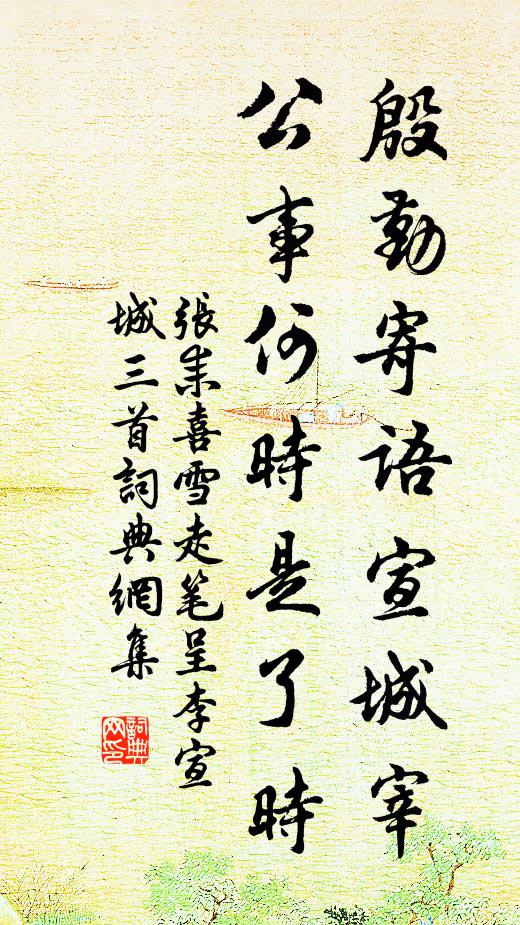 殷勤寄語宣城宰
公事何時是了時
張耒喜雪走笔呈李宣
城三首詞典網集
詞典
网印